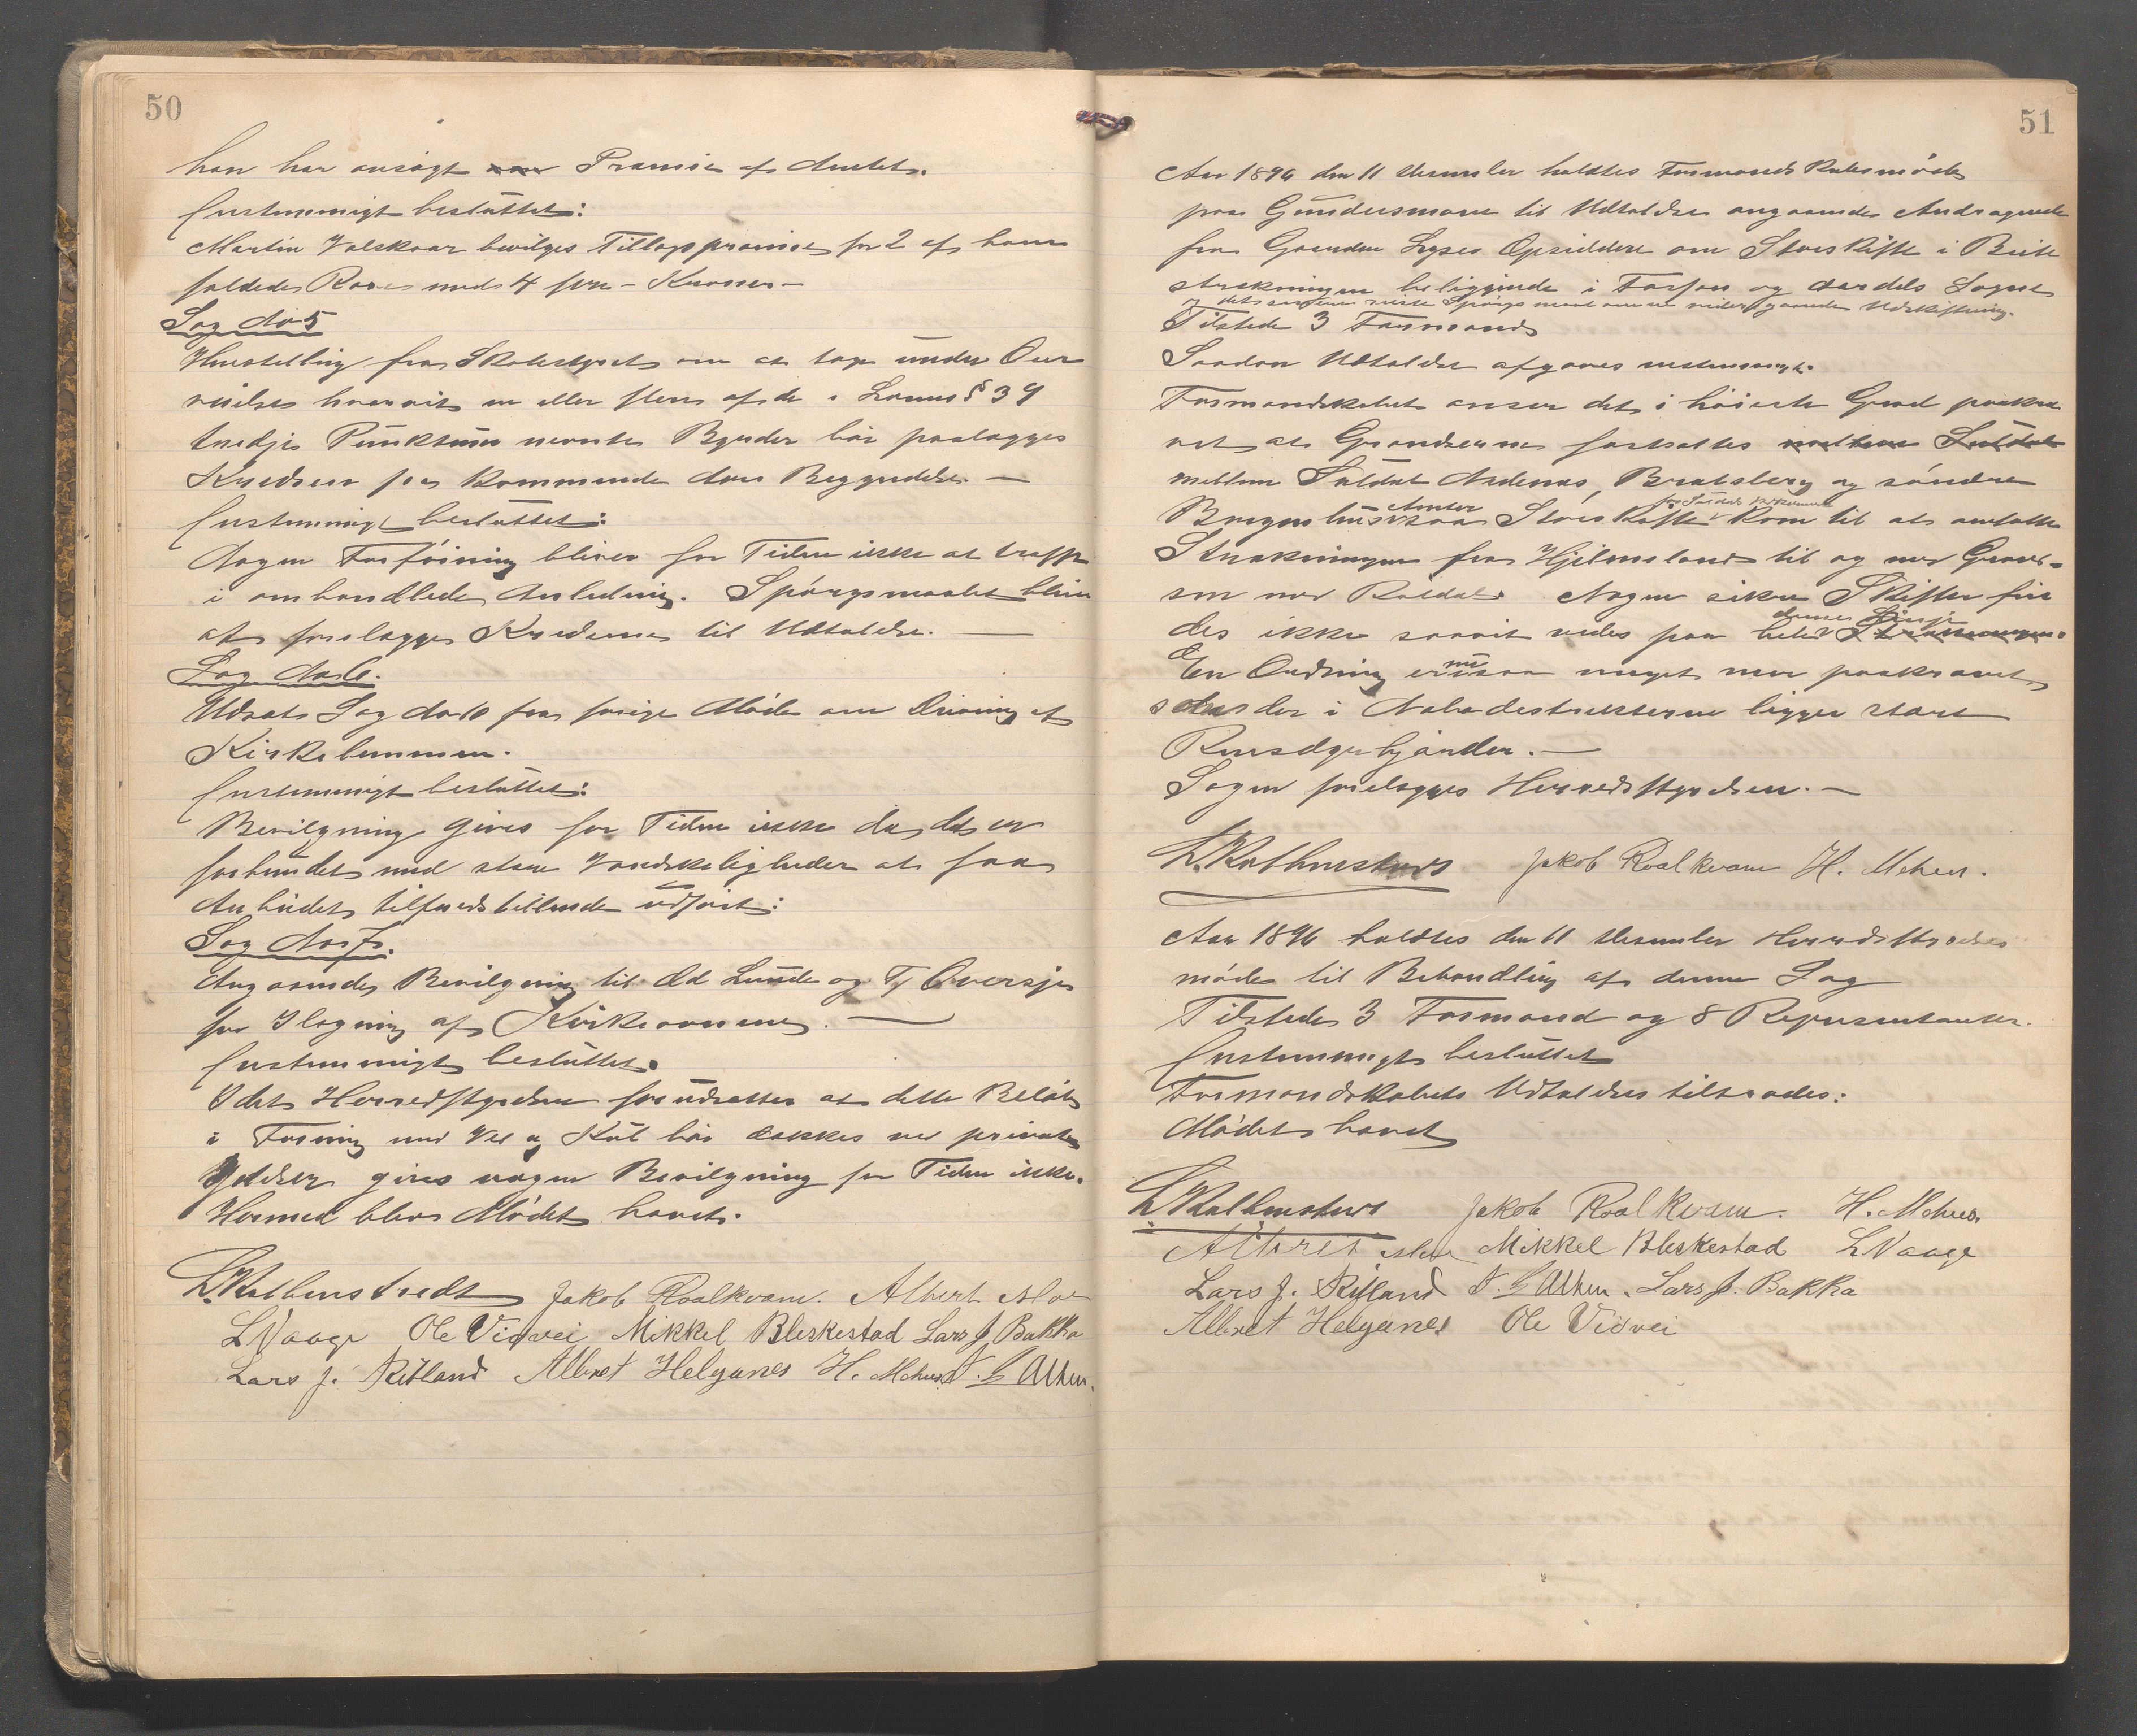 50
han har ansögt om Præmie af Amtet.
Enstemmigt besluttet:
Martin Valskaar bevilges Tillægspræmie for 2 af ham
fældede Ræve med 4 fire – Kroner –
Sag No 5
Henstilling fra Skolestyret om at tage under Over
veielse hvorvidt en eller flere af de i Lovens § 39
tredje Punktum nævnte Byrder bör paalægges
Kredsene fra kommende Aars Begyndelse. —
Enstemmigt besluttet:
Nogen Forföining bliver for Tiden ikke at træffe
i omhandlede Anledning. Spörgsmaalet bliver
at forelægge Kredsene til Udtalelse. —
Sag No 6.
Udsat Sag No 10 fra forrige Möde om Drivning af
Kirkelummen.
Enstemmigt besluttet:
Bevilgning gives for Tiden ikke da det er
forbundet med store Vanskeligheder at faa
Arbeidet tilfredstillende udfört:
Sag No 7.
Angaaende Bevilgning til Od Lunde og Tj Oversje
for Ilægning af Kirkeovnene. —
Enstemmigt besluttet.
Idet Herredsstyrelsen forudsætter at dette Belöb
i Forening med Ved og Kul bör dækkes ved private
Ydelser gives nogen Bevilgning for Tiden ikke.
Hermed blev Mödet hævet.
Jakob Roalkvam. Albert Moe
L Vaage Ole Vidvei Mikkel Bleskestad Lars J. Bakka
Lars J. Ritland Albret Helganes H. Mehus
51
Aar 1896 den 11 December holdtes Formandskabsmöde
paa Gundersmoen til Udtalelse angaaende Andragende
fra Gaarden Lyses Opsiddere om Storskifte i Beite
strækningen beliggende i Forsan og Aardals Sogne
og det senere reiste Spörgsmaal om en videregaaende Udskiftning.
Tilstede 3 Formænd
Saadan Udtalelse afgaves enstemmigt.
Formandskabet anser det i höieste Grad paakræ
vet at Grændserne fastsættes mellem Suldal
mellem Suldal Nedenæs, Bratsberg og söndre
Bergenhus Amter saa Storskifte for Suldals Vedkommende kom til at omfatte
Strækningen fra Hjelmeland til og med Grænd-
sen mod Röldal. Nogen sikre Skifter fin
des ikke saavit vides paa hele denne Linje Strækningen.
En Ordning er nu saa meget mer paakrævet
som der i Nabodestrikterne ligger store
Rensdyrhjorder. —
Sagen forelægges Herredsstyrelsen. —
Jakob Roalkvam H. Mehus.
Aar 1896 holdtes den 11 December Herredsstyrelses
möde til Behandling af denne Sag
Tilstede 3 Formænd og 8 Repræsentanter.
Enstemmigt besluttet
Formandskabets Udtalelse tiltrædes:
Mödet hævet
Jakob Roalkvam. H. Mehus
Albret Moe Mikkel Bleskestad L Vaage
Lars J. Ritland Lars J. Bakka
Albret Helganes Ole Vidvei